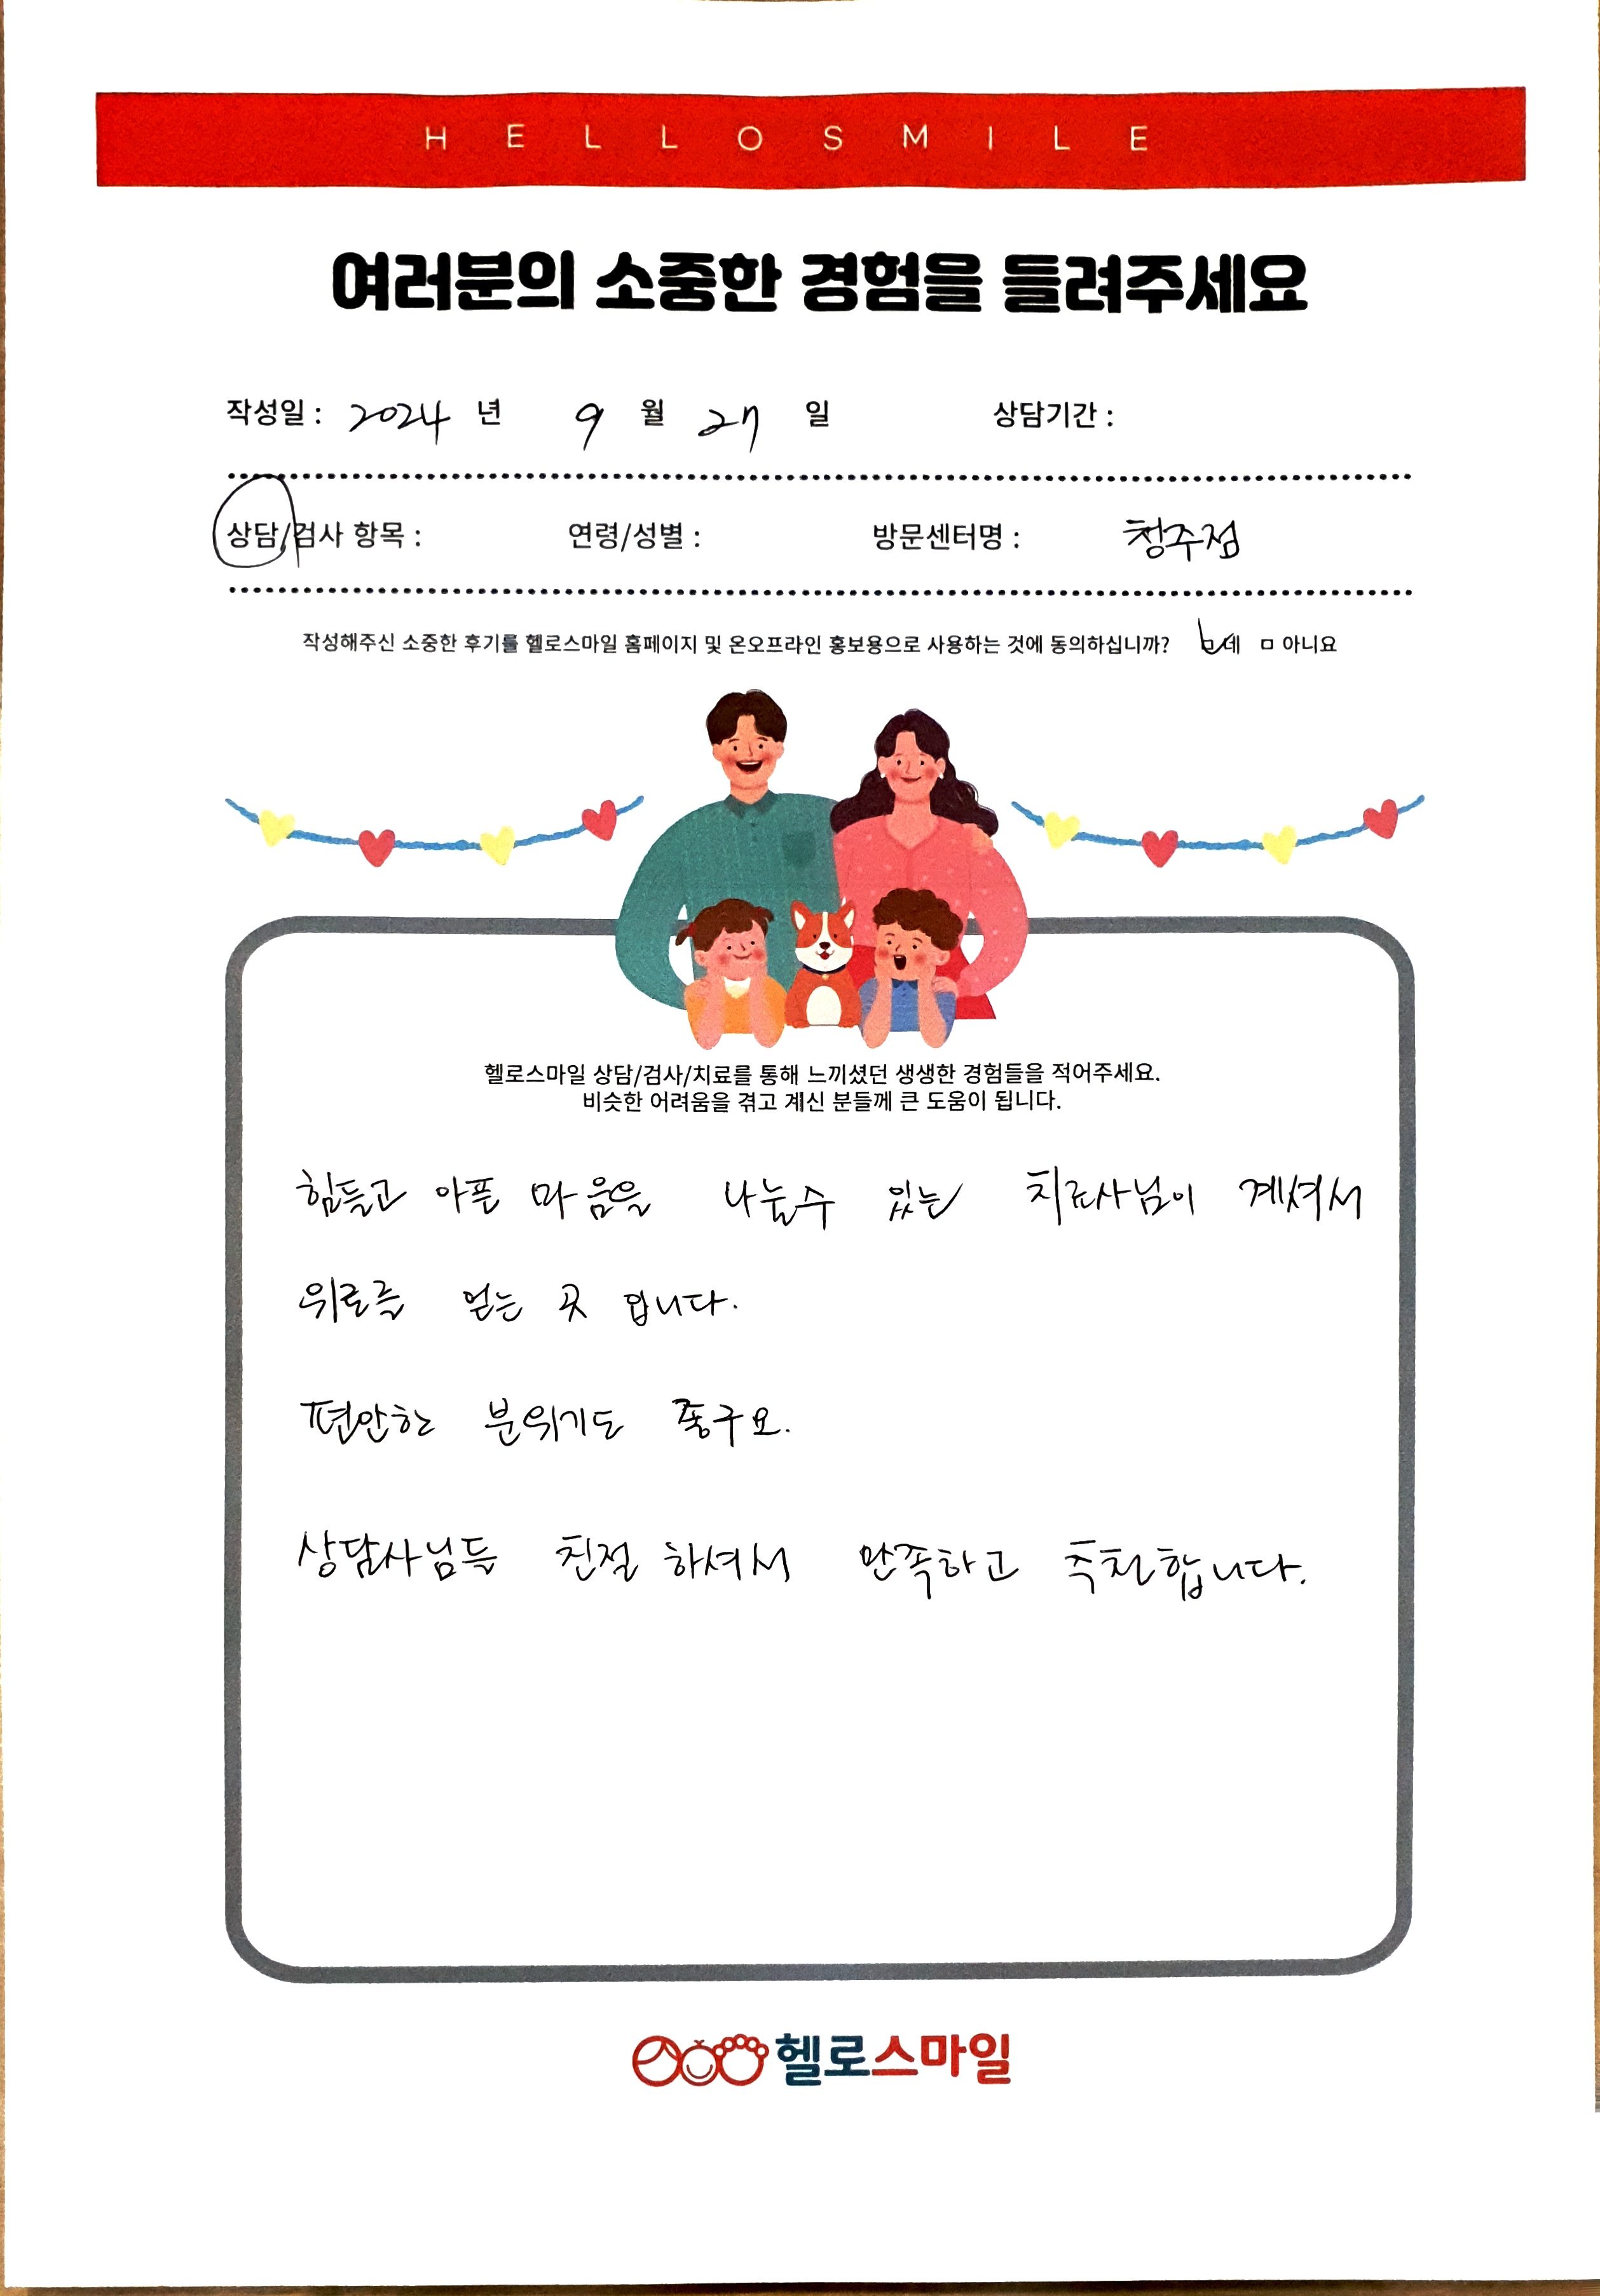 HELLOSMILE
여러분의 소중한 경험을 들려주세요
작성일 : 2024 년 9 월 27 일 상담기간 :
상담/검사 항목 : 연령/성별 : 방문센터명 : 청주점
작성해주신 소중한 후기를 헬로스마일 홈페이지 및 온오프라인 홍보용으로 사용하는 것에 동의하십니까? ☑ 네 ㅁ 아니요
헬로스마일 상담/검사/치료를 통해 느끼셨던 생생한 경험들을 적어주세요.
비슷한 어려움을 겪고 계신 분들께 큰 도움이 됩니다.
힘들고 아픈 마음을 나눌수 있는 치료사님이 계셔서
위로를 얻는 곳 입니다.
편안한 분위기도 좋구요.
상담사님들 친절 하셔서 만족하고 추천합니다.
헬로스마일